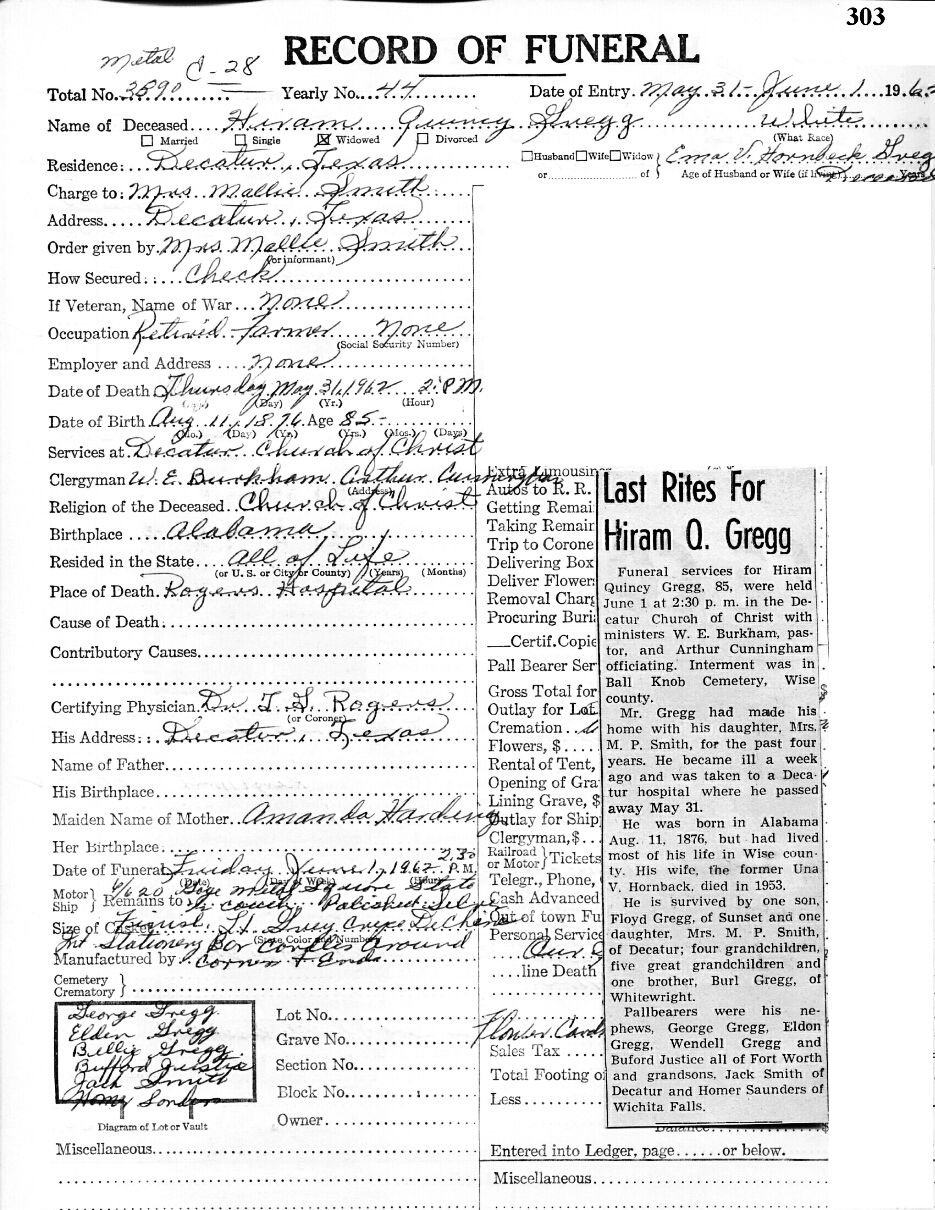 303
RECORD OF FUNERAL
Metal C-28
Total No. 3890 Yearly No. 44 Date of Entry May 31 - June 1 1962
Name of Deceased Hiram Quincy Gregg White
Married Single Widowed Divorced (What Race)
Residence: Decatur, Texas Husband Wife Widow Ema V. Hornbeck Greg
or of Age of Husband or Wife (if living) Deceased Years
Charge to: Mrs. Mallie Smith
Address Decatur, Texas
Order given by Mrs Mallie Smith
(or informant)
How Secured: Check
If Veteran, Name of War None
Occupation Retired Farmer None
(Social Security Number)
Employer and Address None
Date of Death Thursday May 31, 1962 2: P.M.
(Day) (Yr.) (Hour)
Date of Birth Aug. 11, 1876 Age 85-
(Mo.) (Day) (Yr.) (Yrs.) (Mos.) (Days)
Services at Decatur Church of Christ
Clergyman W. E. Burkham Arthur Cunningham
(Address)
Religion of the Deceased Church of Christ
Birthplace Alabama
Resided in the State All of Life
(or U. S. or City or County) (Years) (Months)
Place of Death Rogers Hospital
Cause of Death:
Contributory Causes
Certifying Physician Dr. T. G. Rogers
(or Coroner)
His Address: Decatur, Texas
Name of Father
His Birthplace
Maiden Name of Mother Amanda Harding
Her Birthplace
Date of Funeral Friday June 1, 1962 2,30 P.M.
(Date) (Day of Week) (Hour)
Motor Ship } Remains to
Size of Casket
(State Color and Number)
Manufactured by
Cemetery
Crematory }
George Gregg
Elden Gregg
Billie Gregg
Bufford Justice
Jack Smith
Homer Sonders
Diagram of Lot or Vault
Lot No.
Grave No.
Section No.
Block No.
Owner
Miscellaneous
Extra Limousine
Autos to R. R.
Getting Remai
Taking Remair
Trip to Corone
Delivering Box
Deliver Flower
Removal Charg
Procuring Buri
Certif. Copie
Pall Bearer Ser
Gross Total for
Outlay for Lot
Cremation
Flowers, $
Rental of Tent,
Opening of Gra
Lining Grave, $
Outlay for Ship
Clergyman, $
Railroad or Motor } Tickets
Telegr., Phone,
Cash Advanced
Out of town Fu
Personal Service
line Death
Flower Cards
Sales Tax
Total Footing o
Less
Balance
Entered into Ledger, page......or below.
Miscellaneous
Last Rites For
Hiram Q. Gregg
Funeral services for Hiram
Quincy Gregg, 85, were held
June 1 at 2:30 p. m. in the De-
catur Church of Christ with
ministers W. E. Burkham, pas-
tor, and Arthur Cunningham
officiating. Interment was in
Ball Knob Cemetery, Wise
county.
Mr. Gregg had made his
home with his daughter, Mrs.
M. P. Smith, for the past four
years. He became ill a week
ago and was taken to a Deca-
tur hospital where he passed
away May 31.
He was born in Alabama
Aug. 11, 1876, but had lived
most of his life in Wise coun-
ty. His wife, the former Una
V. Hornback, died in 1953.
He is survived by one son,
Floyd Gregg, of Sunset and one
daughter, Mrs. M. P. Smith,
of Decatur; four grandchildren,
five great grandchildren and
one brother, Burl Gregg, of
Whitewright.
Pallbearers were his ne-
phews, George Gregg, Eldon
Gregg, Wendell Gregg and
Buford Justice all of Fort Worth
and grandsons, Jack Smith of
Decatur and Homer Saunders of
Wichita Falls.